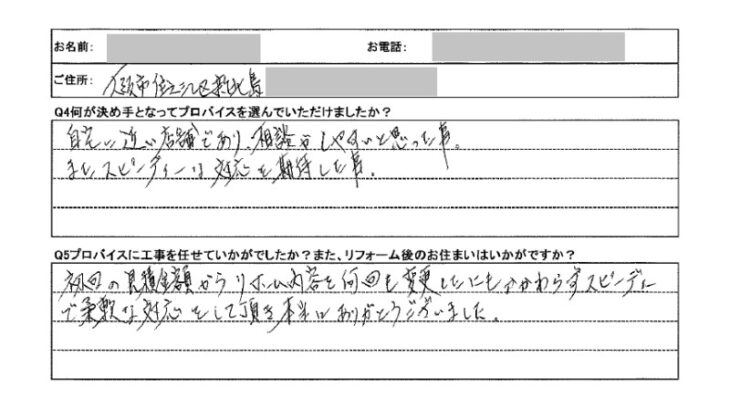 お名前:
お電話:
ご住所: 大阪市住之江区新北島
Q4何が決め手となってプロバイスを選んでいただけましたか？
自宅に近い店舗であり、相談がしやすいと思った事。
またスピーディーな対応を期待した事。
Q5プロバイスに工事を任せていかがでしたか？また、リフォーム後のお住まいはいかがですか？
初回の見積金額からリホーム内容を何回も変更したにもかかわらずスピーディー
で柔軟な対応をして頂き本当にありがとうございました。